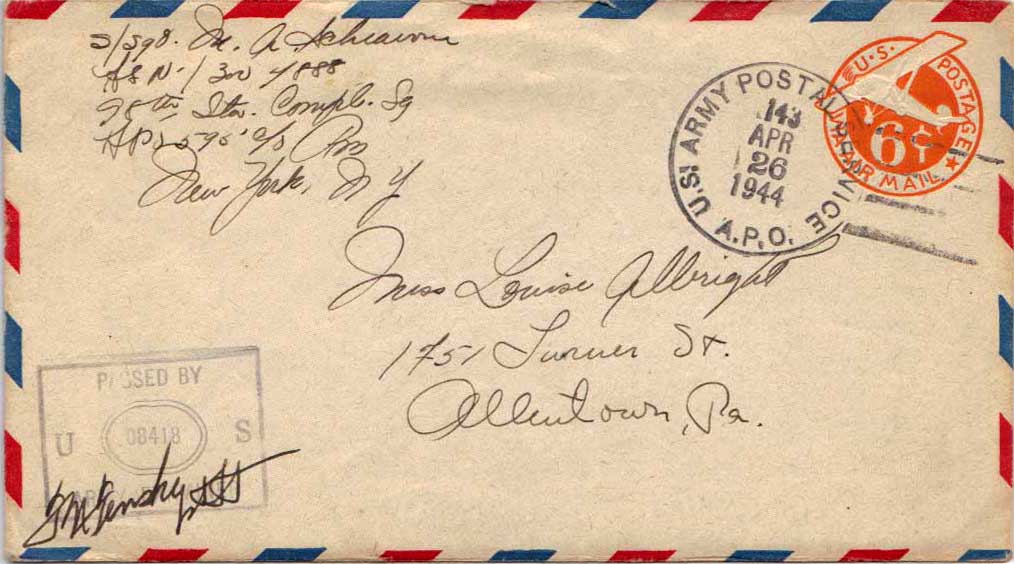 S/Sgt. M. A.
ASN-13024888
98th Stn. Compl. Sq
APO 595 c/o Pm
New York, N Y
U.S. ARMY POSTAL SERVICE
143
APR
26
1944
A.P.O.
U.S. POSTAGE
6¢
VIA AIR MAIL
Miss Louise Albright
1751 Turner St.
Allentown, Pa.
PASSED BY
U 08418 S
ARMY